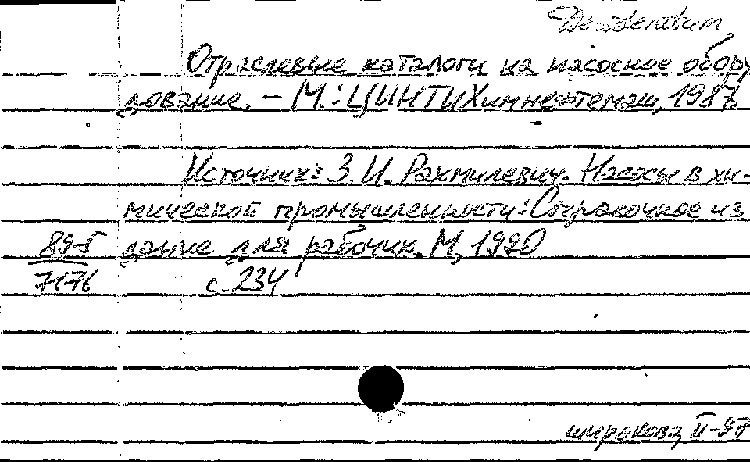 Desideratum
Отраслевые каталоги на насосное обору
дование. – М: ЦИНТИХимнефтемаш, 1987.
Источник: З. И. Рахмилевич. Насосы в хи-
мической промышленности: Справочное из
89-5 дание для рабочих. М, 1990
7176 с. 234
широкова, II-98